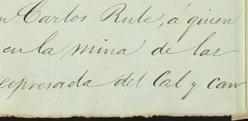 Carlos Rule, á quien
en la mina de las
expresada del Cal y can